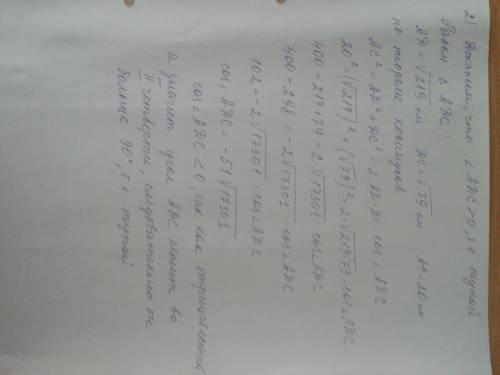 2) Докажем, что ∠ADC>0, т.е тупой
Рассм Δ ADC:
AD = √219 см DC = √79 см AC = 20 см
по теореме косинусов
AC² = AD² + DC² - 2 AD·DC·cos∠ADC
20² = (√219)² + (√79)² - 2·√219·79·cos∠ADC
400 = 219+79 - 2√17301 cos∠ADC
400 - 298 = -2√17301 · cos∠ADC
102 = -2√17301 · cos∠ADC
cos∠ADC = -51√17301
cos∠ADC < 0, так как отрицательный
а значит угол ADC лежит во
II четверти, следовательно он
больше 90°, т.е тупой